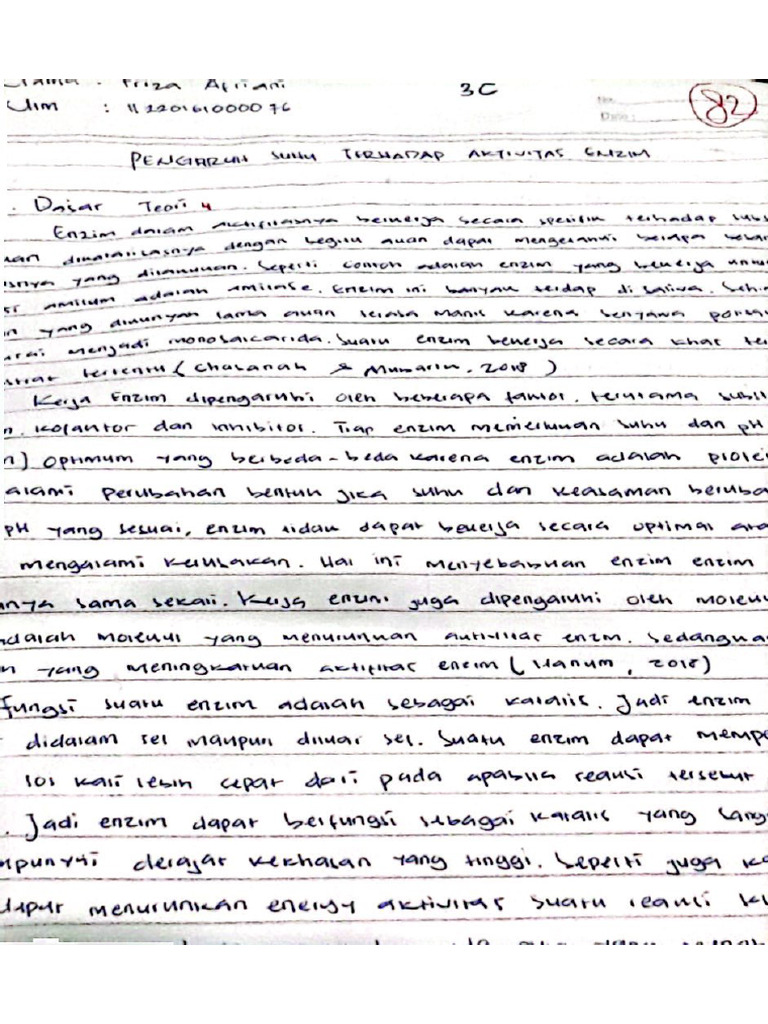 Nama : Friza Afriani 3C
Nim : 11220161000076 82
No.
Date :
PENGARUH SUHU TERHADAP AKTIVITAS ENZIM
. Dasar Teori 4
Enzim dalam aktifitasnya bekerja secara spesifik terhadap subs
dengan begitu akan dapat mengetahui berapa
snya yang dilakukan. Seperti contoh adalah enzim yang bekerja untu
si amilum adalah amilase. Enzim ini banyak terdap di saliva. Sehi
n yang dikunyah lama akan terasa manis karena senyawa
urai menjadi monosakarida. Suatu enzim bekerja secara khas te
strat tertentu (Chasanah & Mubarik, 2018)
Kerja Enzim dipengaruhi oleh beberapa faktor, terutama subst
n, kofaktor dan inhibitor. Tiap enzim memerlukan suhu dan pH
n) optimum yang berbeda-beda karena enzim adalah protei
alami perubahan bentuk jika suhu dan keasaman beruba
pH yang sesuai, enzim tidak dapat bekerja secara optimal ata
mengalami kerusakan. Hal ini menyebabkan enzim enzim
nnya sama sekali. Kerja enzim juga dipengaruhi oleh moleku
adalah molekul yang menurunkan aktivitas enzim. Sedangka
n yang meningkatkan aktifitas enzim (Hanum, 2018)
fungsi suatu enzim adalah sebagai katalis. Jadi enzim
didalam sel maupun diluar sel. Suatu enzim dapat mempe
kali lebih cepat dari pada apabila reaksi tersebut
. Jadi enzim dapat berfungsi sebagai katalis yang sang
mpunyai derajat kekhasan yang tinggi. Seperti juga ka
dapat menurunkan energy aktivitas suatu reaksi ki